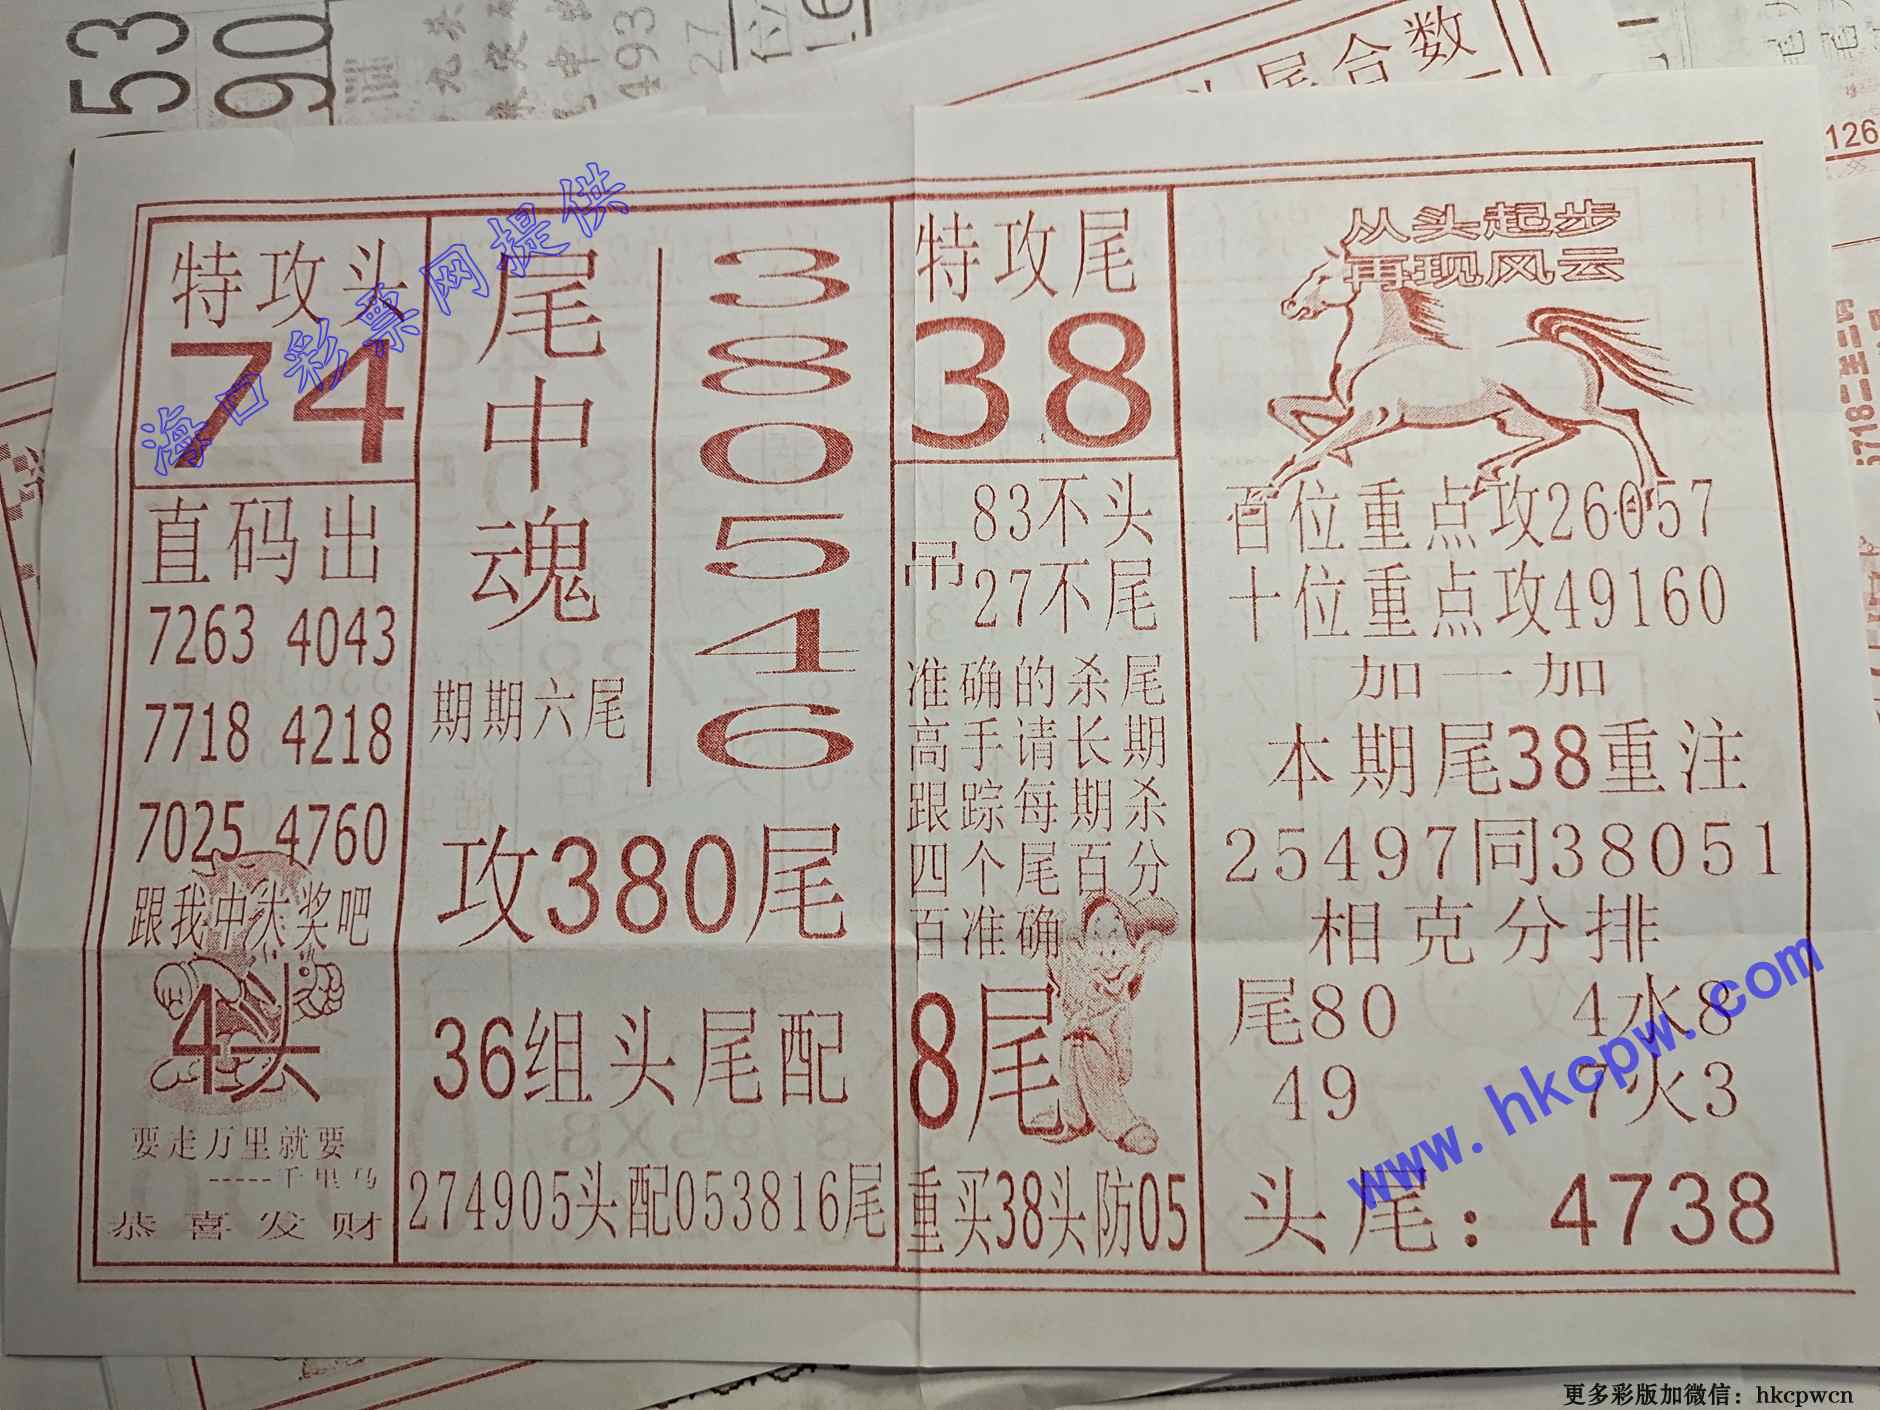 53
90
493
27
尾合数
126
海口彩票网提供
特攻头
74
直码出
7263 4043
7718 4218
7025 4760
跟我中大奖吧
4头
要走万里就要
-----千里马
恭喜发财
尾中魂
期期六尾
3
8
0
5
4
6
攻380尾
36组头尾配
274905头配053816尾
特攻尾
38
吊
83不头
27不尾
准确的杀尾
高手请长期
跟踪每期杀
四个尾百分
百准确
8尾
重买38头防05
从头起步
再现风云
百位重点攻26057
十位重点攻49160
加一加
本期尾38重注
25497同38051
相克分排
尾80 4水8
49 7火3
头尾：4738
www.hkcpw.com
更多彩版加微信：hkcpwcn